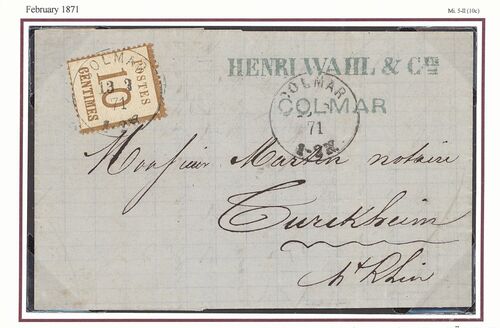 February 1871
Mi. 5-II (10c)
POSTES
10
CENTIMES
COLMAR
13 3
71
HENRI WAHL & Cie
COLMAR
COLMAR
71
1-2N
Monsieur Martin notaire
Turckheim
ht Rhin